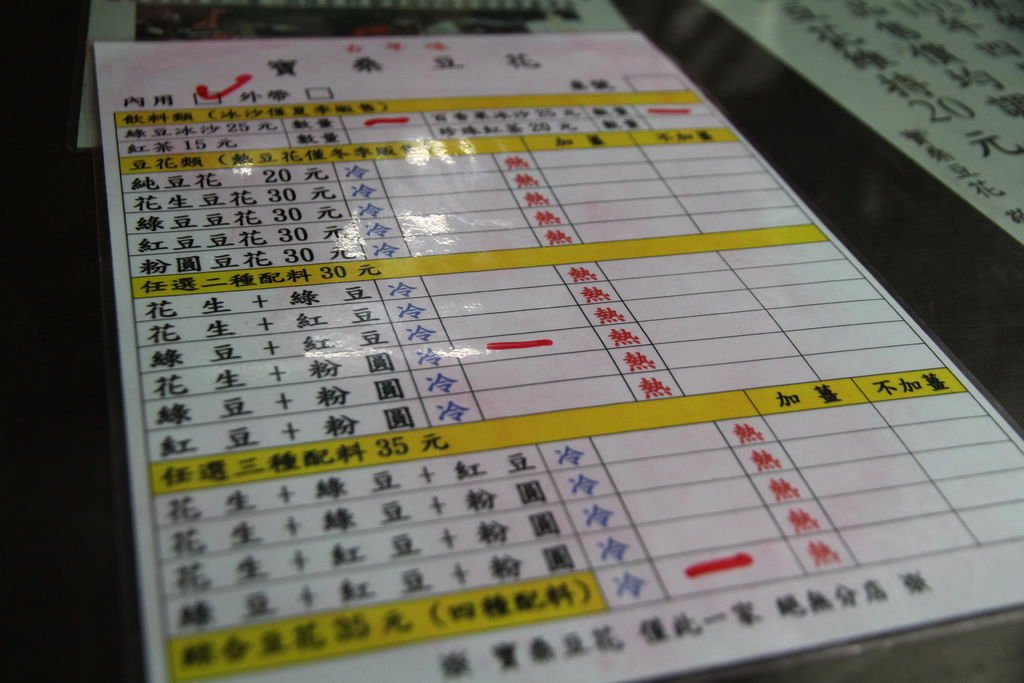 古早味
寶桑豆花
內用 外帶 桌號
飲料類 (冰沙僅夏季販售)
綠豆冰沙 25 元 數量 百香果冰沙 25 元 數量
紅茶 15 元 數量 珍珠紅茶 20 元 數量
豆花類 (熱豆花僅冬季販售) 加薑 不加薑
純豆花 20 元 冷 熱
花生豆花 30 元 冷 熱
綠豆豆花 30 元 冷 熱
紅豆豆花 30 元 冷 熱
粉圓豆花 30 元 冷 熱
任選二種配料 30 元
花生+綠豆 冷 熱
花生+紅豆 冷 熱
綠豆+紅豆 冷 熱
花生+粉圓 冷 熱
綠豆+粉圓 冷 熱
紅豆+粉圓 冷 熱
任選三種配料 35 元 加薑 不加薑
花生+綠豆+紅豆 冷 熱
花生+綠豆+粉圓 冷 熱
花生+紅豆+粉圓 冷 熱
綠豆+紅豆+粉圓 冷 熱
綜合豆花 35 元 (四種配料) 冷 熱
※ 寶桑豆花 僅此一家 絕無分店 ※
四調
價均
花維持 20 元
寶桑豆花